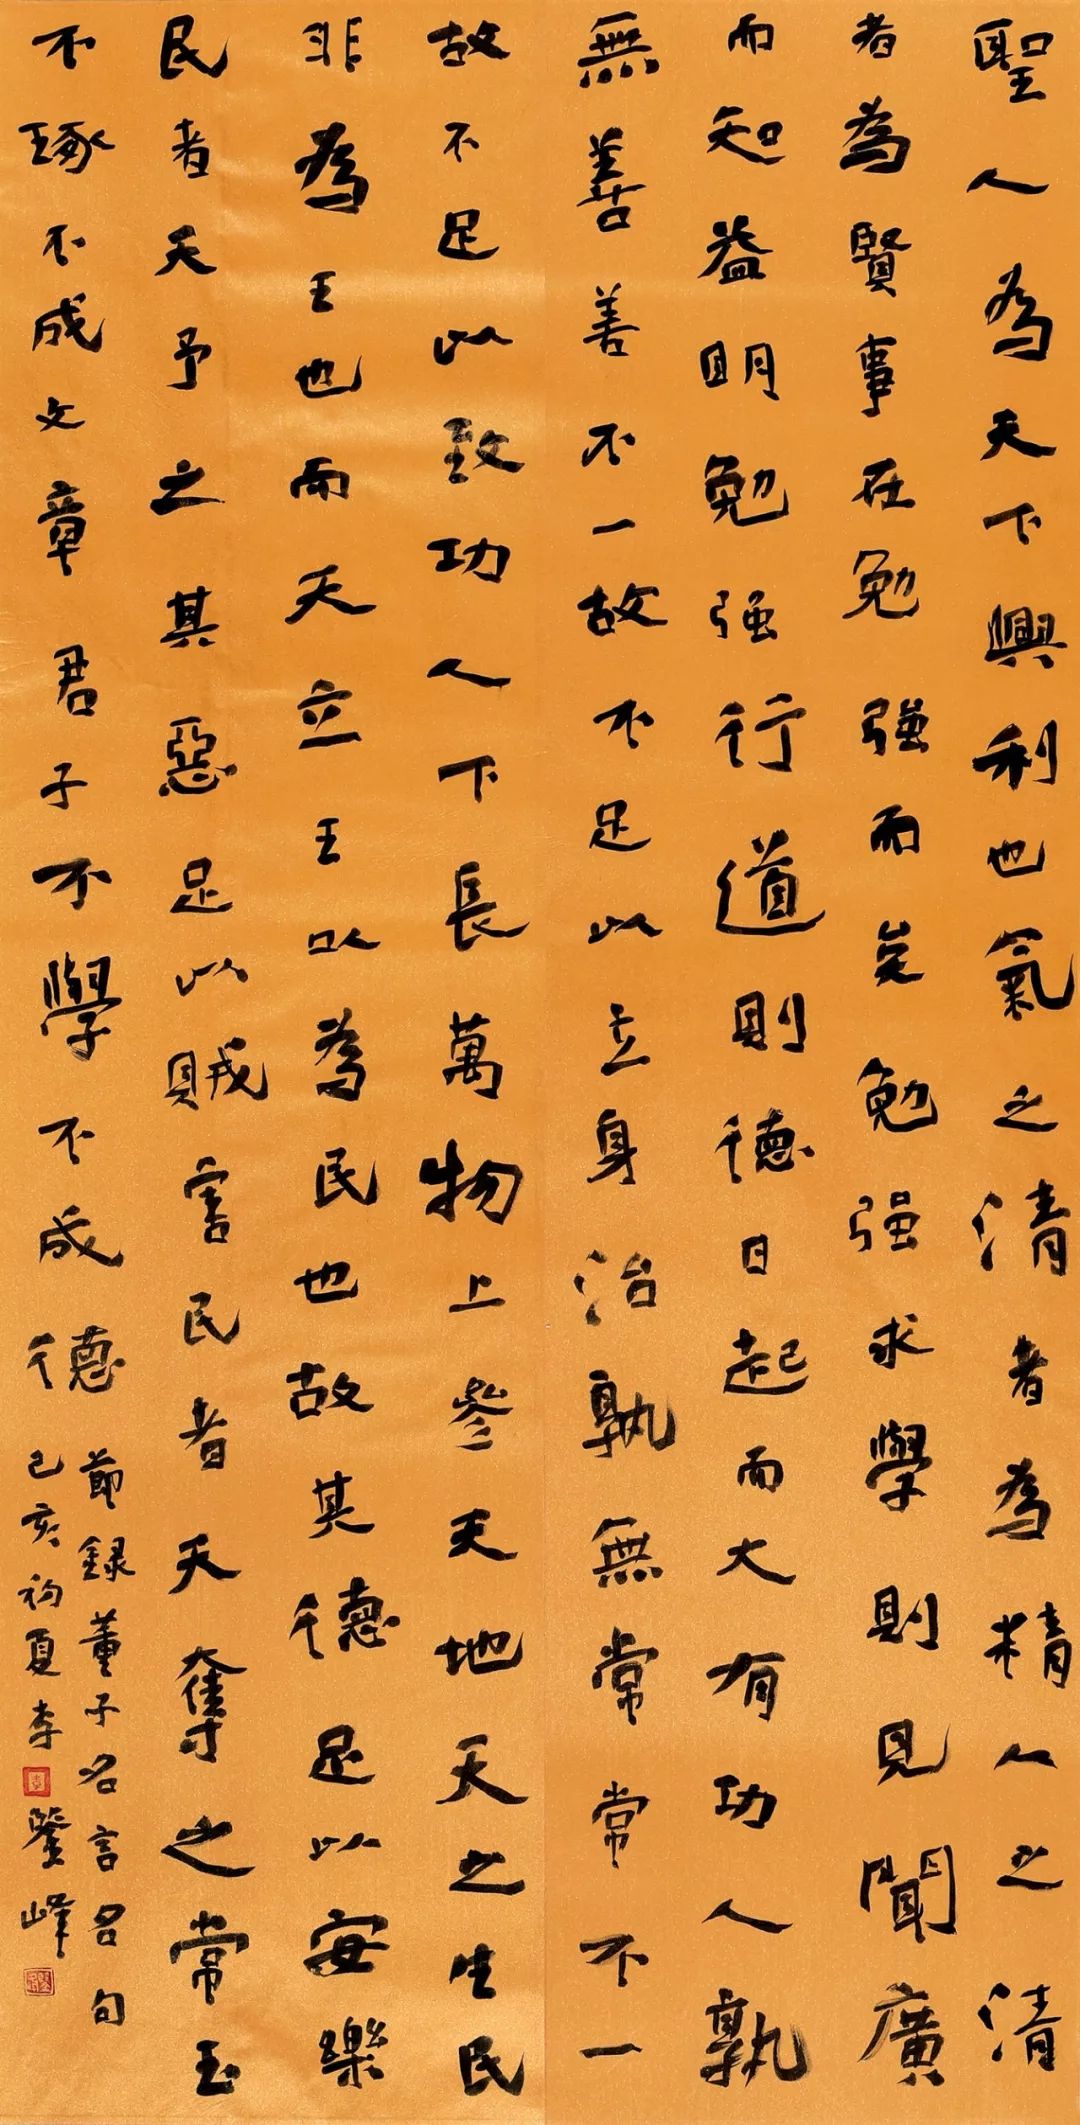 聖人為天下興利也氣之清者為精人之清
者為賢事在勉強而矣勉强求學則見聞廣
而知益明勉强行道則德日起而大有功人孰
無善善不一故不足以立身治孰無常常不一
故不足以致功人下長萬物上參天地天之生民
非為王也而天立王以為民也故其德足以安樂
民者天予之其惡足以賊害民者天奪之常玉
不琢不成文章君子不學不成德
節録董子名言名句
己亥初夏李鑒峰